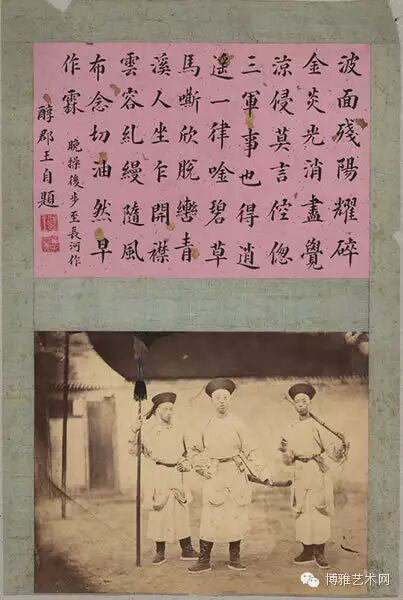 波面殘陽耀碎
金炎光消盡覺
涼侵莫言倥偬
三軍事也得逍
遙一律唫碧草
馬嘶欣脫轡青
溪人坐乍開襟
雲容糺縵隨風
布念切油然早
作霖
晚操後步至長河作
醇郡王自題
博雅艺术网